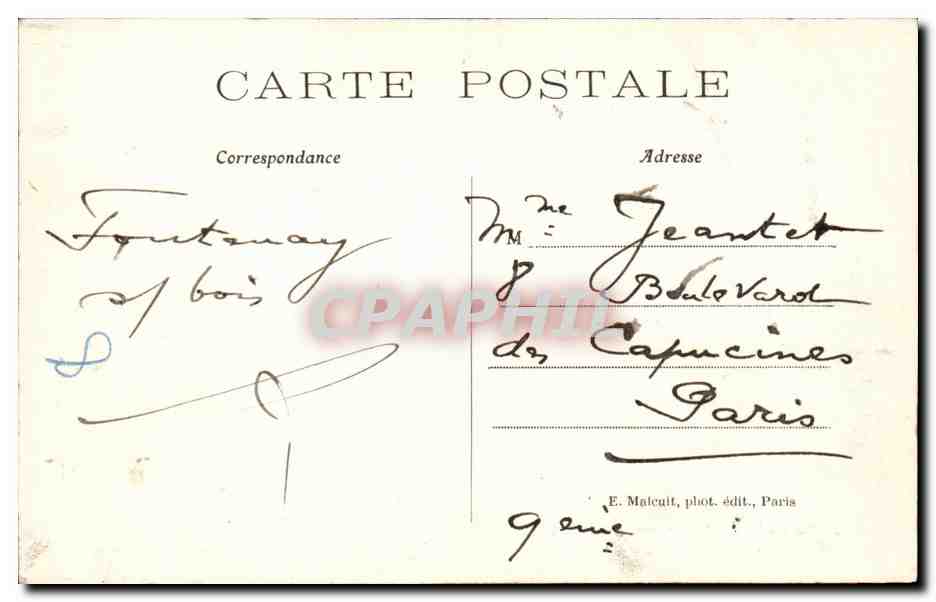 CARTE POSTALE
Correspondance
Fontenay
s/ bois
8
Adresse
M Mme Jeantet
8 Boulevard
des Capucines
Paris
E. Malcuit, phot. édit., Paris
9eme
CPAPHIL